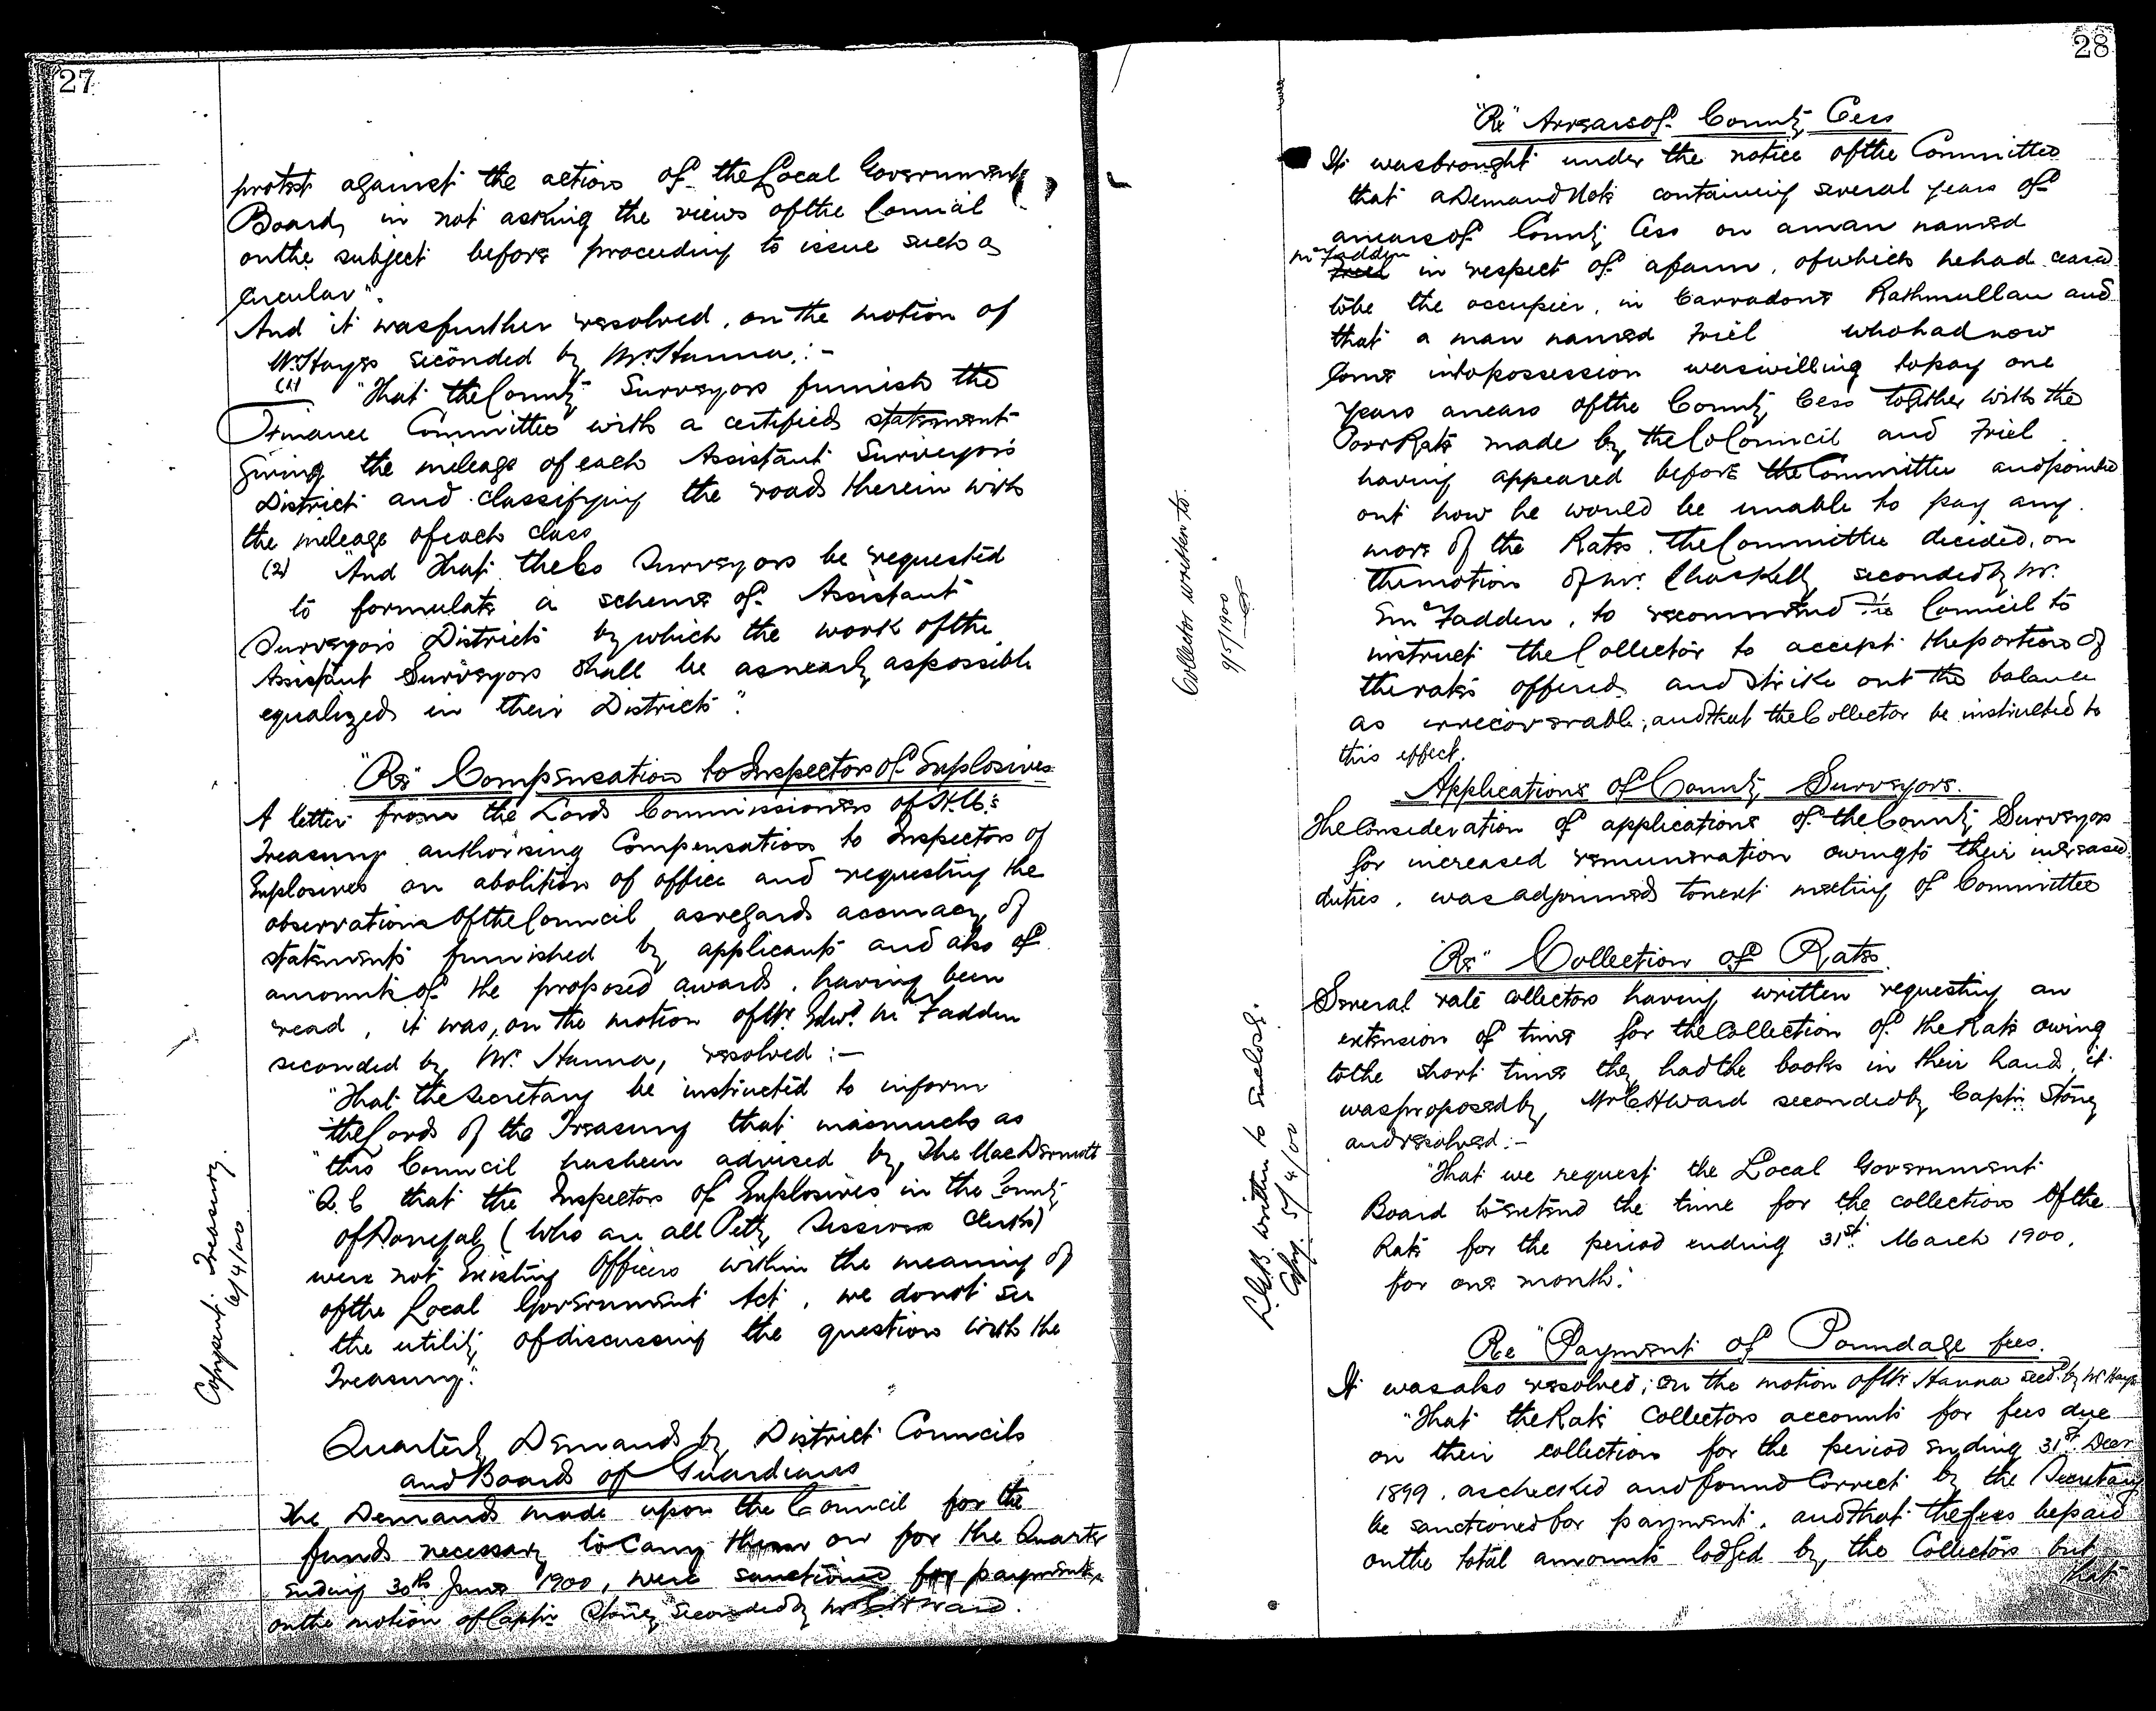 27
protest against the action of the Local Government
Board, in not asking the views of the Council
on the subject before proceeding to issue such a
Circular".
And it was further resolved, on the motion of
Mr. Hayes seconded by Mr. Hanna,:-
(1) "That the County Surveyors furnish the
Finance Committee with a certified statement
giving the mileage of each Assistant Surveyors
District and classifying the roads therein with
the mileage of each class
(2) "And that the Co Surveyors be requested
to formulate a scheme of Assistant
Surveyors Districts by which the work of the
Assistant Surveyors shall be as nearly as possible
equalized in their Districts".
"Re" Compensation to Inspectors of Explosives
A letter from the Lords Commissioners of H.M's
Treasury authorising Compensation to Inspectors of
Explosives on abolition of office and requesting the
observations of the Council as regards accuracy of
statements furnished by applicants and also of
amounts of the proposed awards, having been
read, it was, on the motion of Mr. Edwd. McFadden
seconded by Mr. Hanna, resolved:-
"That the Secretary be instructed to inform
the Lords of the Treasury that inasmuch as
"this Council has been advised by, The MacDermott
"Q.C that the Inspectors of Explosives in the County
of Donegal (who are all Petty Sessions Clerks)
were not Existing Officers within the meaning of
of the Local Government Act, we do not see
the utility of discussing the question with the
Treasury."
Copy sent Treasury.
6/4/00
Quarterly Demands by District Councils
and Boards of Guardians
The Demands made upon the Council for the
funds necessary to carry them on for the Quarter
ending 30th June 1900, were sanctioned for payment,
on the motion of Captn Stoney seconded by Mr C H Ward.
28
"Re" Arrears of County Cess
It was brought under the notice of the Committee
that a Demand Note containing several years of
arrears of County Cess on a man named
McFadden
in respect of a farm, of which he had ceased
to be the occupier, in Carradone Rathmullan and
that a man named Friel who had now
Come into possession was willing to pay one
years arrears of the County Cess together with the
Poor Rate made by the Co Council and Friel
having appeared before the Committee and pointed
out how he would be unable to pay any
more of the Rates. The Committee decided, on
the motion of Mr. Chas Kelly seconded by Mr.
E McFadden, to recommend the Council to
instruct the Collector to accept the portion of
the rates offered and strike out the balance
as irrecoverable; and that the Collector be instructed to
this effect.
Collector written to.
9/5/1900
Applications of County Surveyors.
The Consideration of applications of the County Surveyors
for increased remuneration owing to their increased
duties, was adjourned to next meeting of Committee
"Re" Collection of Rates
Several rate collectors having written requesting an
extension of time for the Collection of the Rate owing
to the short time they had the books in their hands, it
was proposed by, Mr C H Ward seconded by, Captn. Stoney
and resolved:-
"That we request the Local Government
Board to extend the time for the collection of the
Rate for the period ending 31st March 1900,
for one month."
L.G.B. written to
Copy. 5/4/00
Re "Payment of Poundage fees.
It was also resolved; on the motion of Mr. Hanna secd. by Mr Hayes
"That the Rate Collectors accounts for fees due
on their collection for the period ending 31st. Decr
1899, as checked and found Correct by the Secretary
be sanctioned for payment, and that the fees be paid
on the total amounts lodged by the Collectors but
that